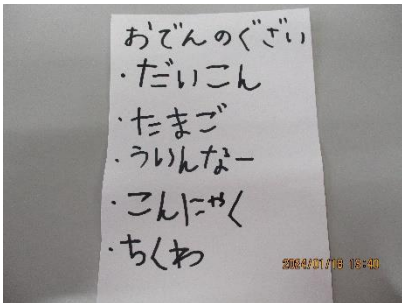 おでんのぐざい
・だいこん
・たまご
・ういんなー
・こんにゃく
・ちくわ
2024/01/18 14:40